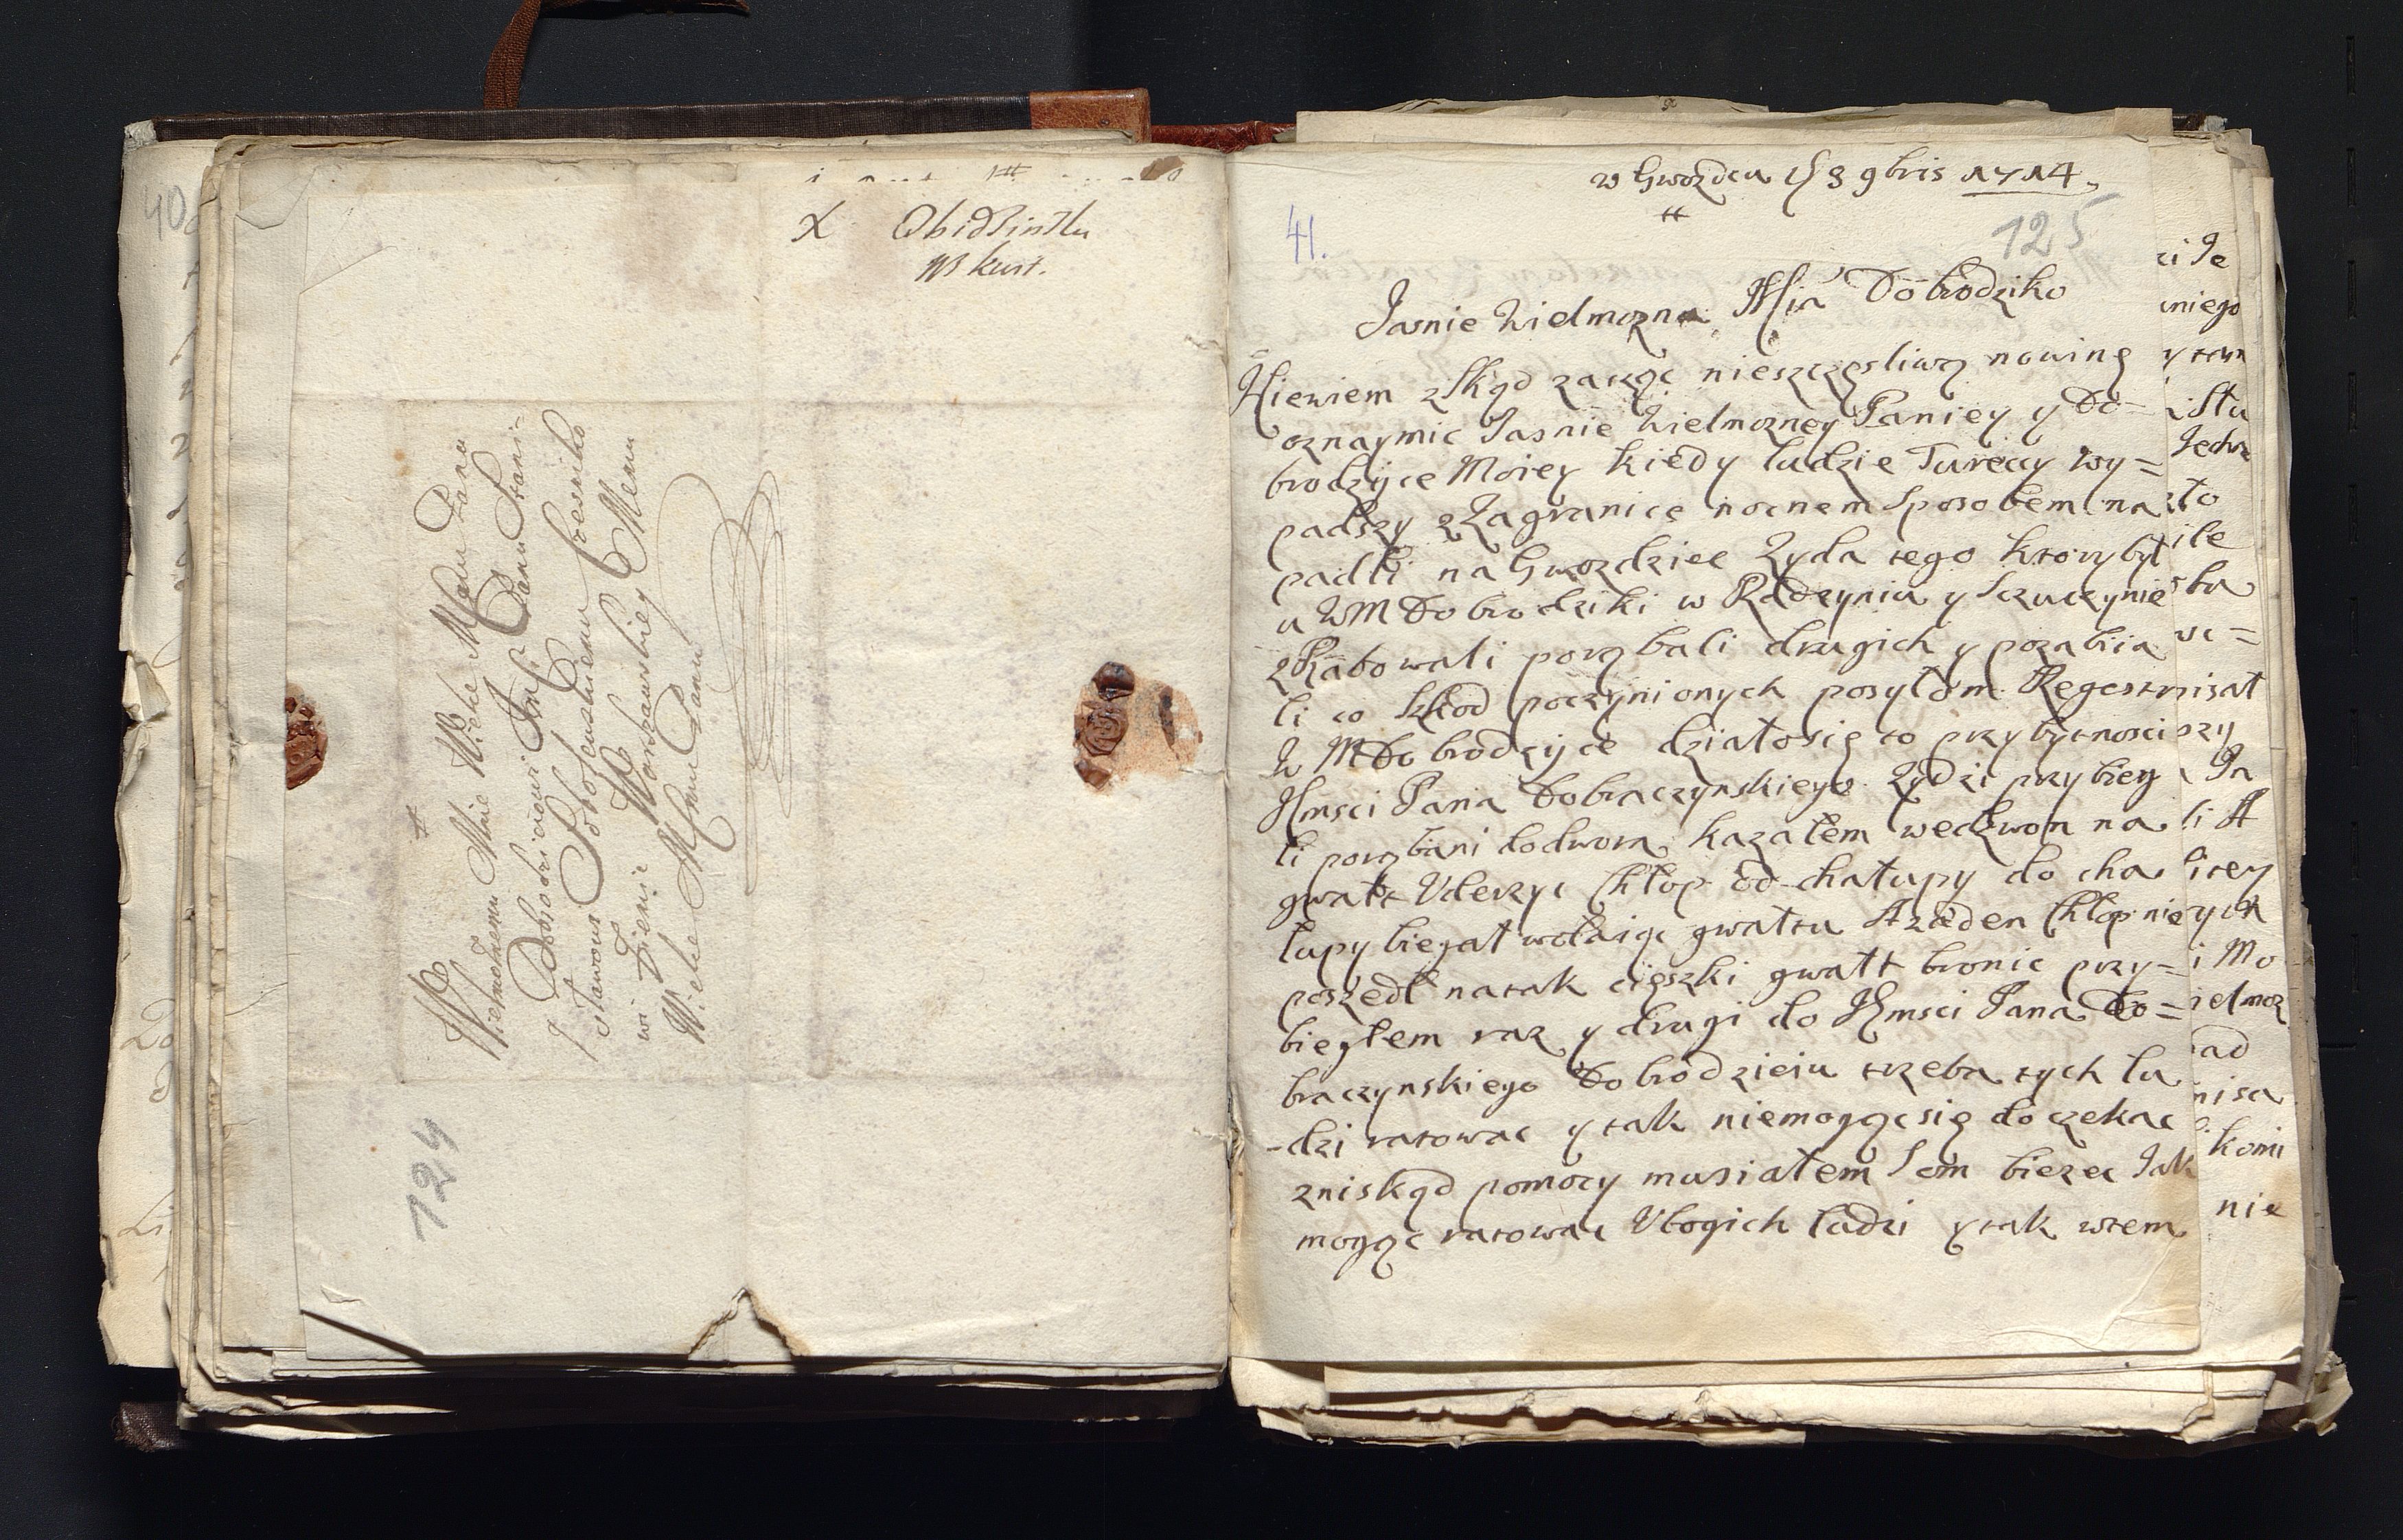 40
X Obidzinsku
W kurt.
#
Wielmożnemu Mnie Wielce Mœmu Panu
y Dobrodzieiowi Panu Stani-
sławowi
wi Ziemie Warszawskiey Memu
Wielce Mœmu Panu
124
w Gwozdcu 9bris 1714.
41.
125
Jasnie Wielmozna Mia Dobrodziko
Niewiem zkąd zacząc nieszczęsliwą nowinę
oznaymic Jasnie Wielmozney Paniey y Do-
brodzyce Moiey kiedy ludzie Tureccy wy=
padszy z Zagranice nocnem sposobem na
padli na Gwozdziec Zyda tego ktory był
u WM Dobrodziki w Radzyniu y Sczuczynie
zRabowali porąbali drugich y pozabia
li co Szkod poczynionych posyłom Regestr
W M Dobrodzyce działosię to przy bytnosci
Jmsci Pana Dobraczynskiego Zydzi przybieg
li porąbani dodwora kazałem wedzwon na
gwałt Vderzyc Chłop od chałupy do cha
łupy biegał wołaiąc gwałtu A zaden Chłop nie
poszedł natak cięszki gwałt bronic przy=
biegłem raz y drugi do Jmsci Pana Do=
braczynskiego Dobrodzieiu trzeba tych lu
-dzi ratowac y tak niemogącsię doczekac
zniskąd pomocy musiałem Sam biezec Jak
mogąc ratowac Vbogich ludzi y tak wtem
zi Je
niego
y tem
i Stu
Jedn
to
ile
ba
wc=
pisał
czy
Ja
li A
licey
ych
i Mo
ielmoz
ad
pisa
komi
nie